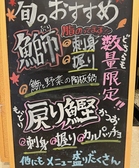 旬のおすすめ
鰤
刺身
握り
数量限定!!
鰤と野菜の陶板焼
戻り鰹
刺身・握り・カルパッチョ
他にもメニューぼっだくさん